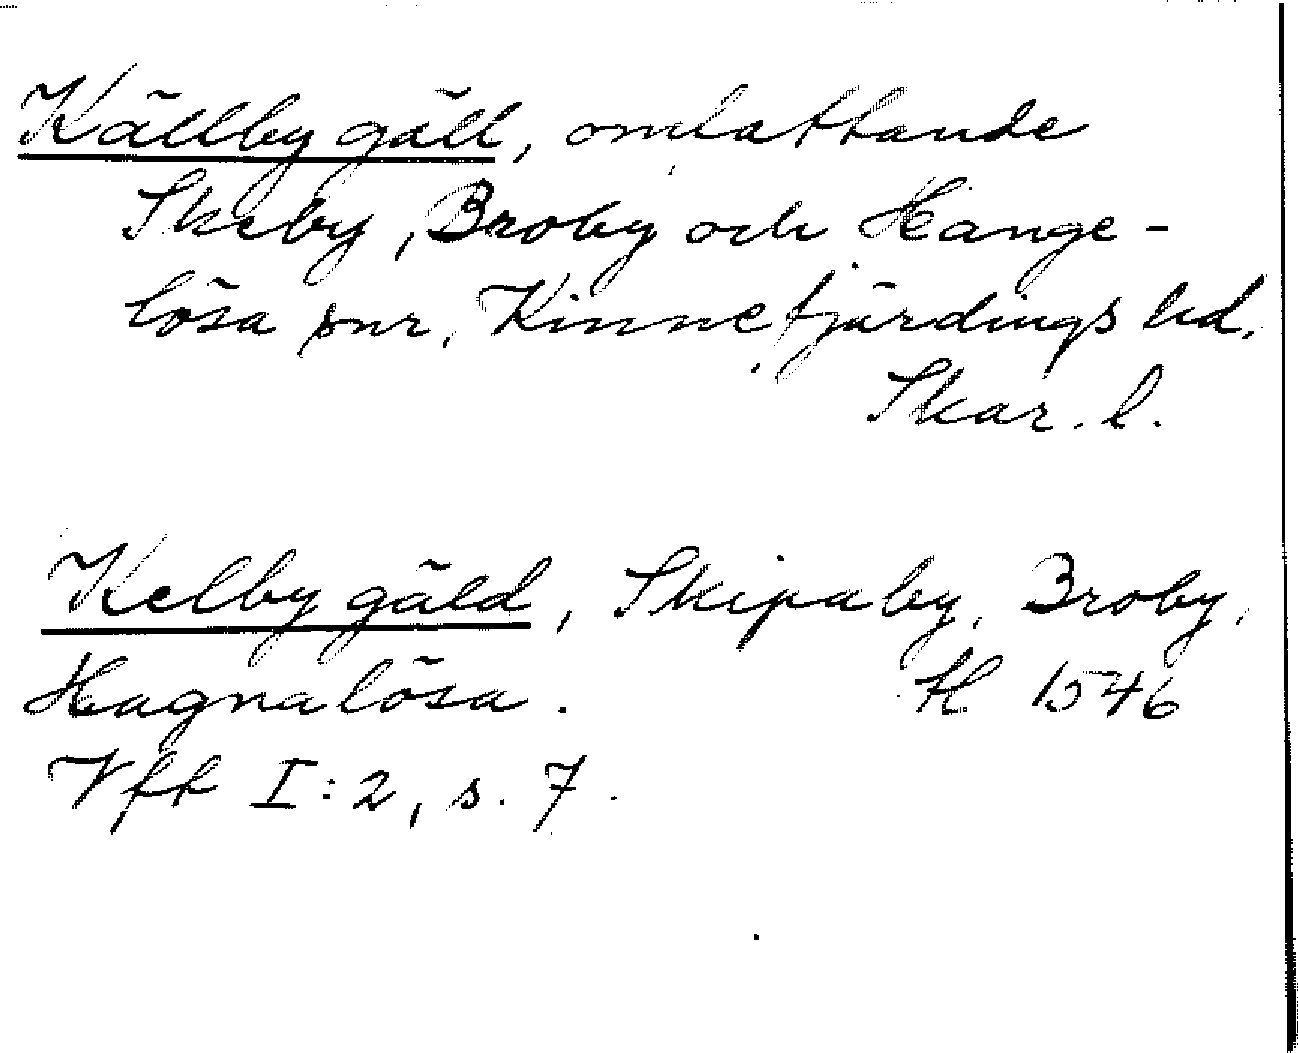 Källby gäll, omfattande
Skeby, Broby och Hange-
lösa snr, Kinnefjärdings hd,
Skar. l.
Kelby gäld, Skipaby, Broby,
Hagnalösa. H 1546
Vft I:2, s. 7.